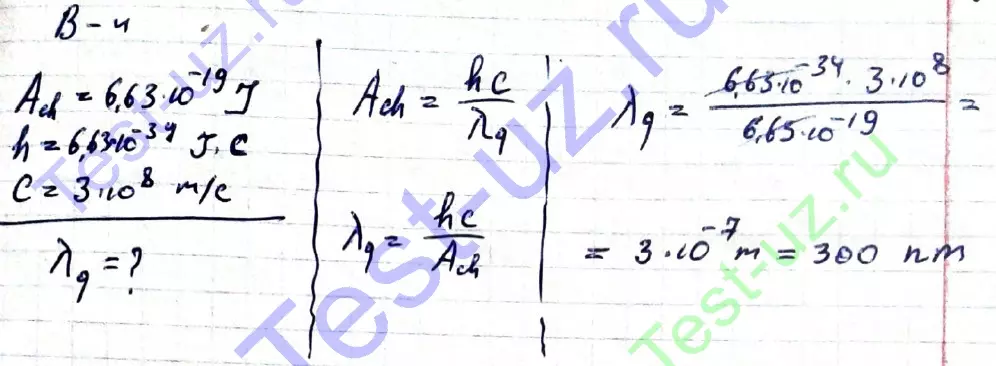 B-4
A_ch = 6,63·10^-19 J
h = 6,63·10^-34 J·c
c = 3·10^8 m/c
λ_q = ?
A_ch = hc/λ_q
λ_q = hc/A_ch
λ_q = (6,63·10^-34 · 3·10^8)/(6,65·10^-19) =
= 3·10^-7 m = 300 nm
Test-uz.ru
Test-uz.ru
Test-uz.ru